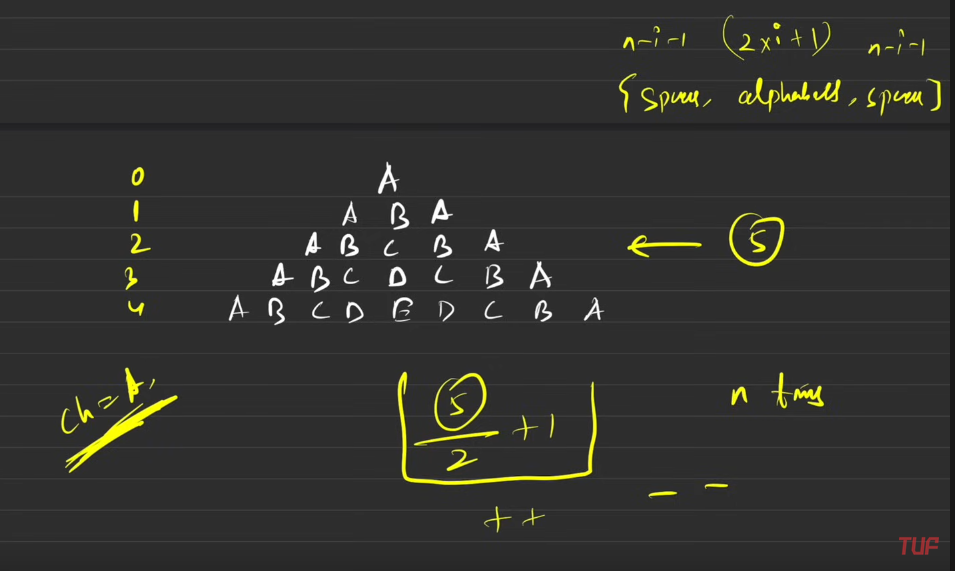 n-i-1 (2xi+1) n-i-1
[space, alphabets, space]
0 A
1 A B A
2 A B C B A ← 5
3 A B C D C B A
4 A B C D E D C B A
ch = A,
5/2 + 1
n times
++
- -
TUF